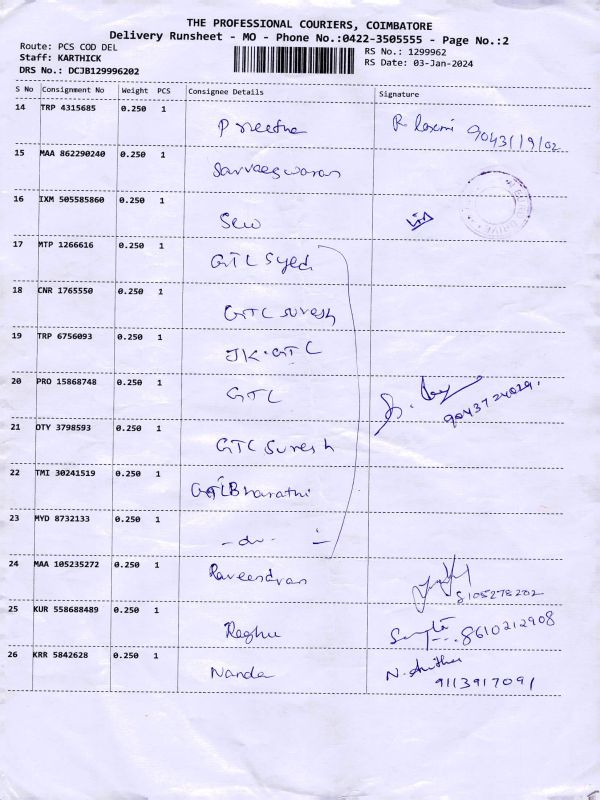 THE PROFESSIONAL COURIERS, COIMBATORE
Delivery Runsheet - MO - Phone No.:0422-3505555 - Page No.:2
Route: PCS COD DEL
RS No.: 1299962
Staff: KARTHICK
RS Date: 03-Jan-2024
DRS No.: DCJB129996202
S No Consignment No Weight PCS Consignee Details Signature
14 TRP 4315685 0.250 1 Preetha R. laxmi
15 MAA 862290240 0.250 1 Sarveeswaran
16 IXM 505585860 0.250 1
17 MTP 1266616 0.250 1 GTL Syed
18 CNR 1765550 0.250 1 GTC Suresh
19 TRP 6756093 0.250 1 JK.GTC
20 PRO 15868748 0.250 1 GTL
9043724029.
21 OTY 3798593 0.250 1 GTC Suresh
22 TMI 30241519 0.250 1 GTL Bharathi
23 MYD 8732133 0.250 1 - do -
24 MAA 105235272 0.250 1 Raveendran
8105278202
25 KUR 558688489 0.250 1 Raghu 8610212908
26 KRR 5842628 0.250 1 Nanda N. Anitha
9113917091